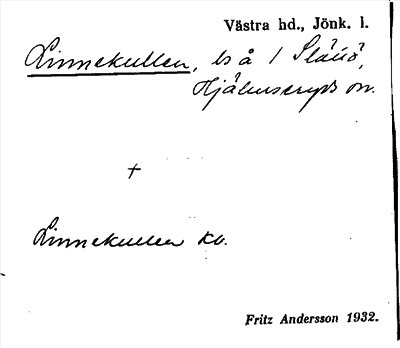 Västra hd., Jönk. l.
Linnekullen, ls å 1 Slätö,
Hjälmseryds sn.
+
Linnekullen kb.
Fritz Andersson 1932.